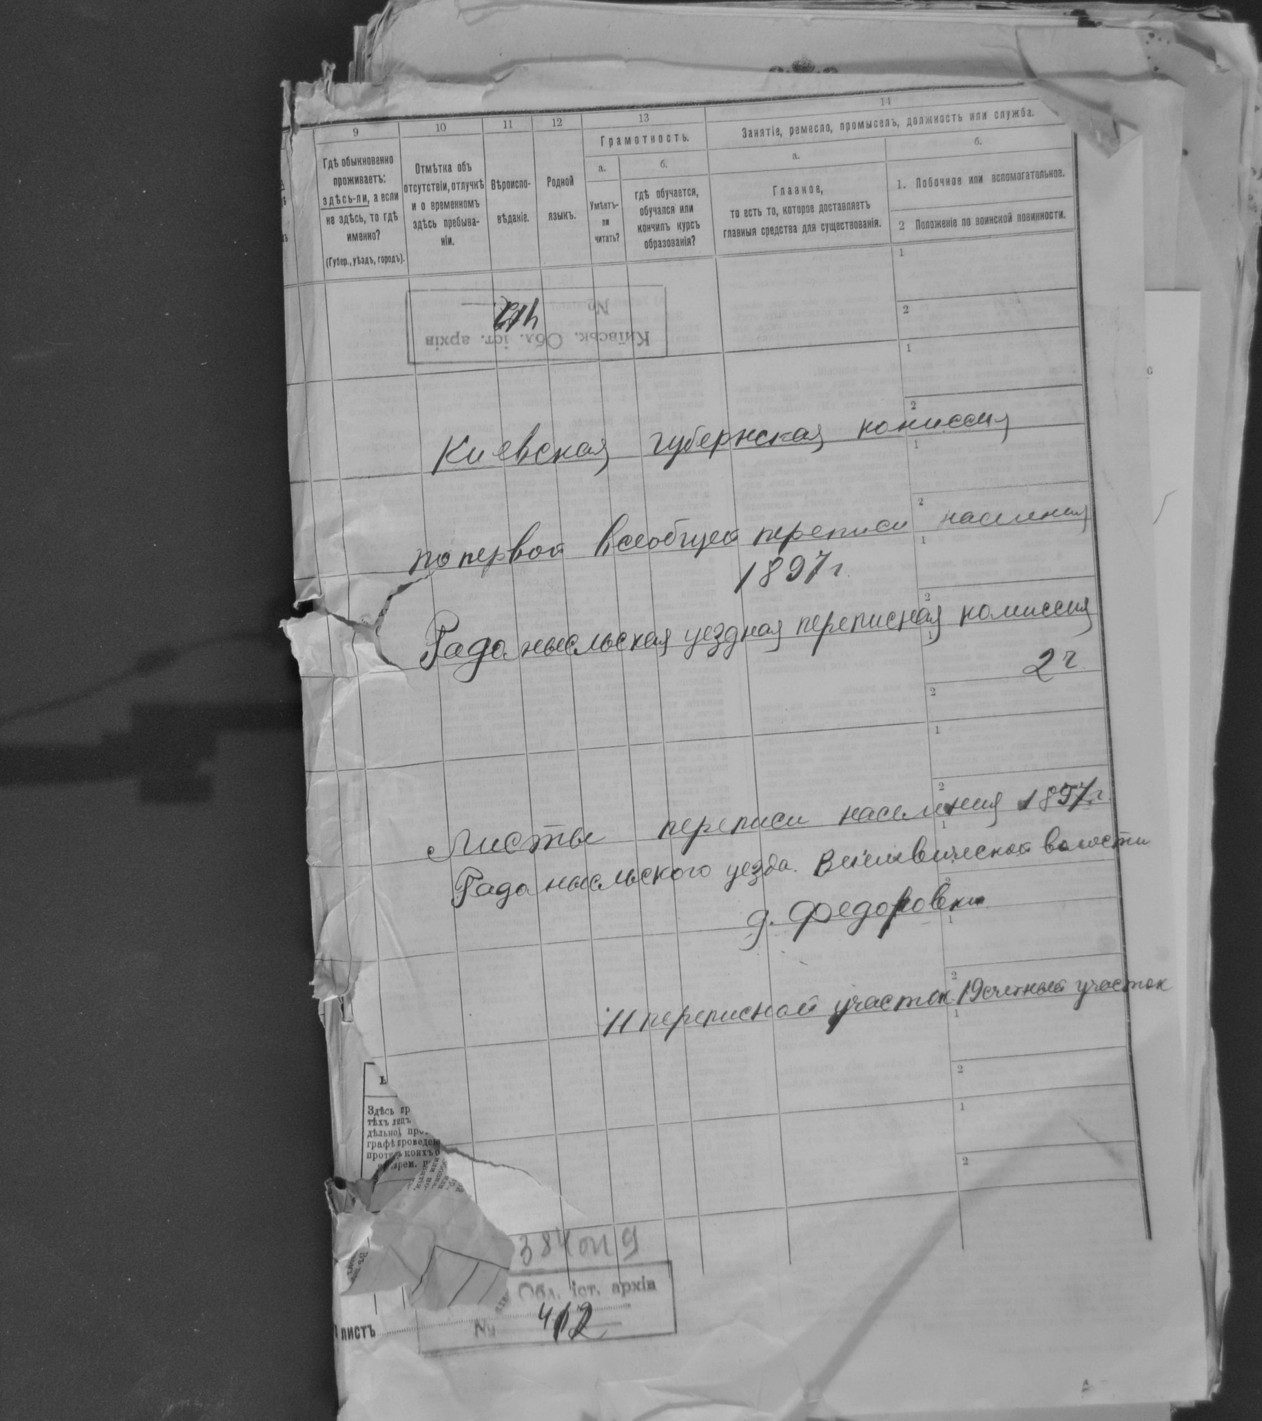 9 10 11 12 13 14
Грамотность. Занятіе, ремесло, промыселъ, должность или служба.
а. б. а. б.
Гдѣ обыкновенно
проживаетъ:
здѣсь-ли, а если
не здѣсь, то гдѣ
именно?
(Губер., уѣздъ, городъ).
Отмѣтка объ
отсутствіи, отлучкѣ
и о временномъ
здѣсь пребыва-
ніи.
Вѣроиспо-
вѣданіе.
Родной
языкъ.
Умѣетъ-
ли
читать?
гдѣ обучается,
обучался или
кончилъ курсъ
образованія?
Главное,
то есть то, которое доставляетъ
главныя средства для существованія.
1. Побочное или вспомогательное.
2 Положеніе по воинской повинности.
Київськ. Обл. іст. архів
№
Киевская губернская комиссия
по первой всеобщей переписи населения
1897 г.
Радомысльская уездная переписная комиссия
2 г.
Листы переписи населения 1897 г.
Радомысльского уезда. волости
д. Федоровки
11 переписной участок 19 счетный участок
Здѣсь
384 оп 9
Обл. іст. архів
№ 412
листъ